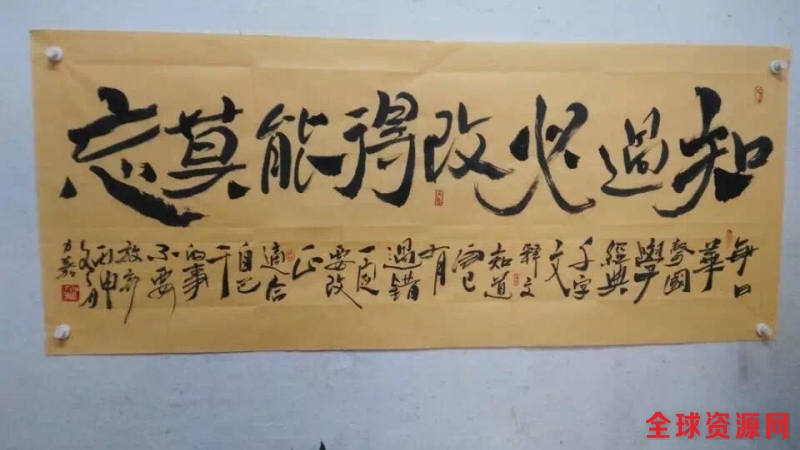 知過必改得能莫忘
每日
華
國
學
經典
千字
文
释文
知道
自己
有
過錯
一定
要改
正
適合
自己
干
的事
不要
放弃
丙申
全球资源网